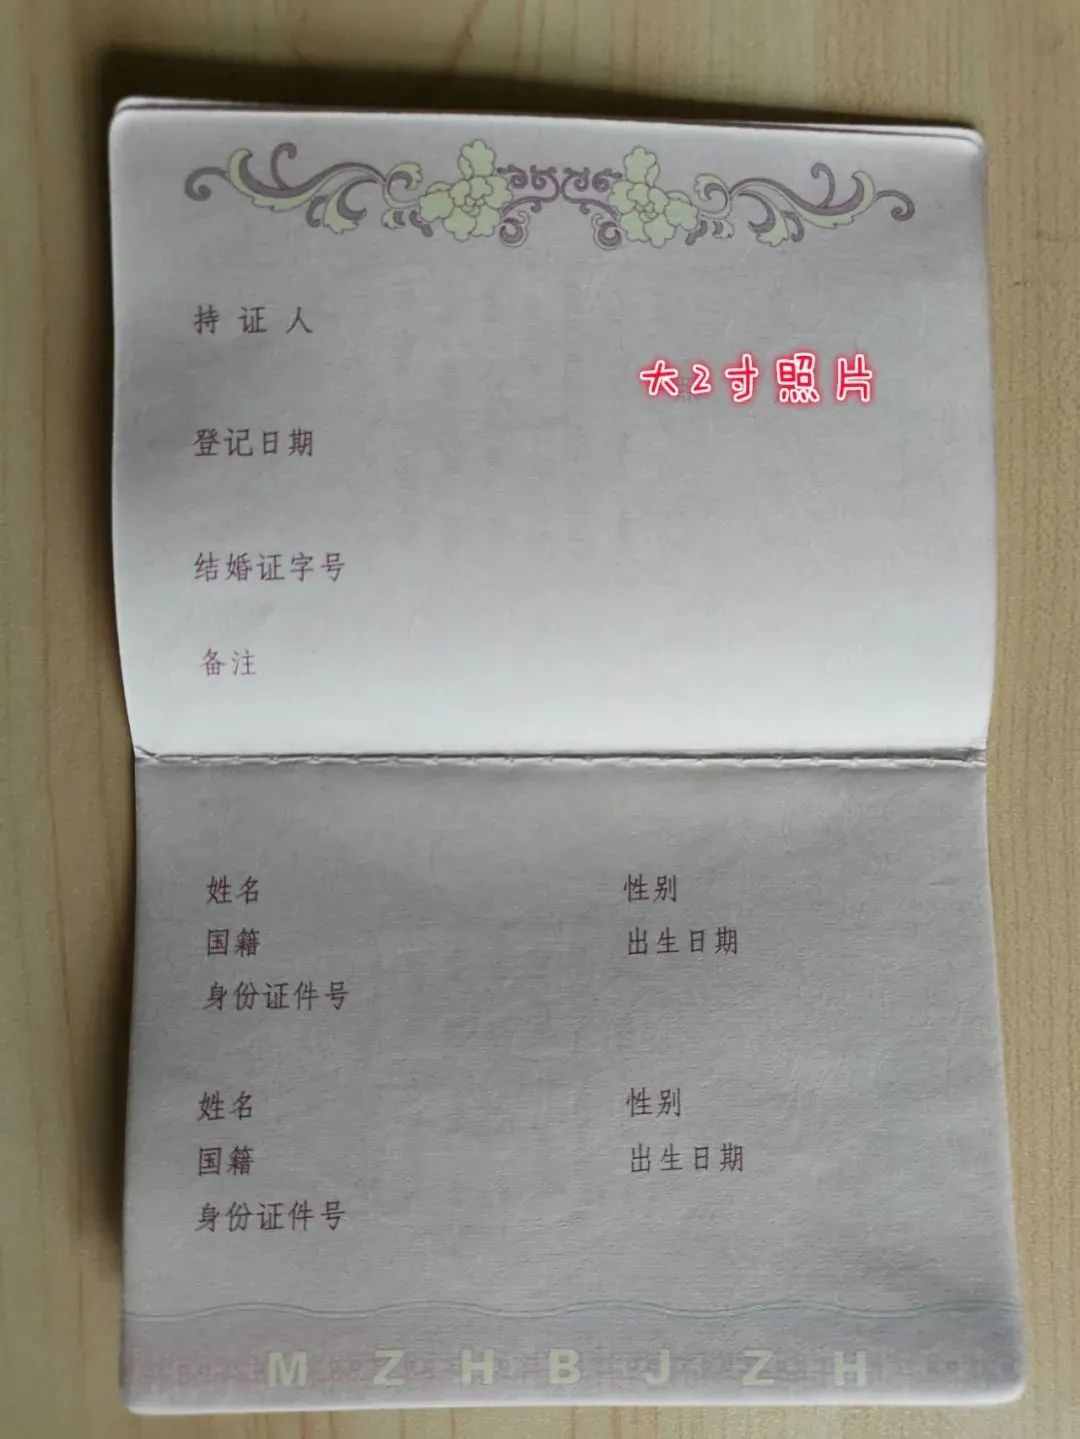 持证人
大2寸照片
登记日期
结婚证字号
备注
姓名 性别
国籍 出生日期
身份证件号
姓名 性别
国籍 出生日期
身份证件号
MZHBJZH